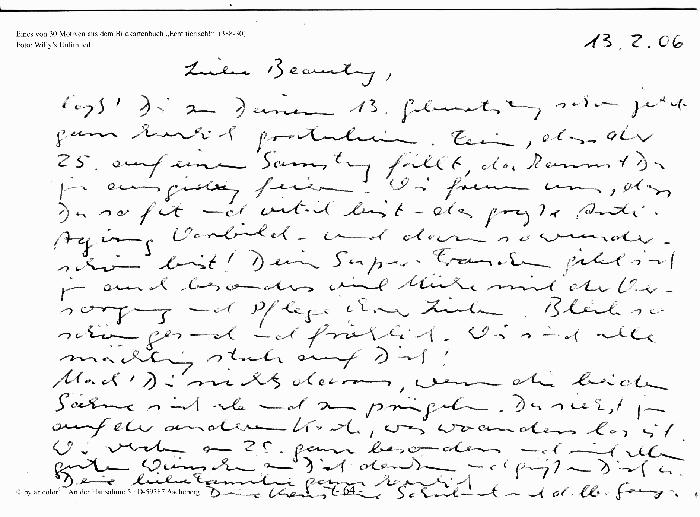 Eines von 30 Motiven aus dem Postkartenbuch
Foto: Willy's Unlimited
13.2.06
Liebe
laß' Dir zu Deinem 13. Geburtstag schon jetzt
ganz herzlich gratulieren. Fein, dass der
25. auf einen Samstag fällt, da kannst Du
ja ausgiebig feiern. Wir freuen uns, dass
Du so fit und vital bist - das große Anti-
Aging Vorbild - und dazu so wunder-
schön bist! Dein Super Frauchen gibt sich
ja auch besonders viel Mühe mit der Ver-
sorgung und Pflege ihrer Lieben. Bleib so
schön gesund und fröhlich. Wir sind alle
mächtig stolz auf Dich!
Mach' Dir nichts daraus, wenn die beiden
Söhne sich ab und zu prügeln. Du siehst ja
auf der anderen Karte, was woanders los ist.
Wir werden am 25. ganz besonders und mit allen
guten Wünschen an Dich denken und grüßen Dich u.
Deine liebe Familie ganz herzlich